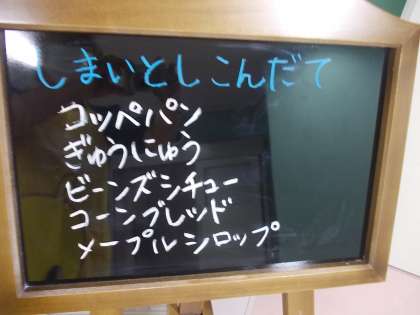 しまいとしこんだて
コッペパン
ぎゅうにゅう
ビーンズシチュー
コーンブレッド
メープルシロップ